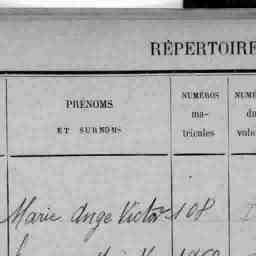 RÉPERTOIRE
PRENOMS
ET SURNOMS
NUMÉROS
ma-
tricules
Marie Ange Victor 108